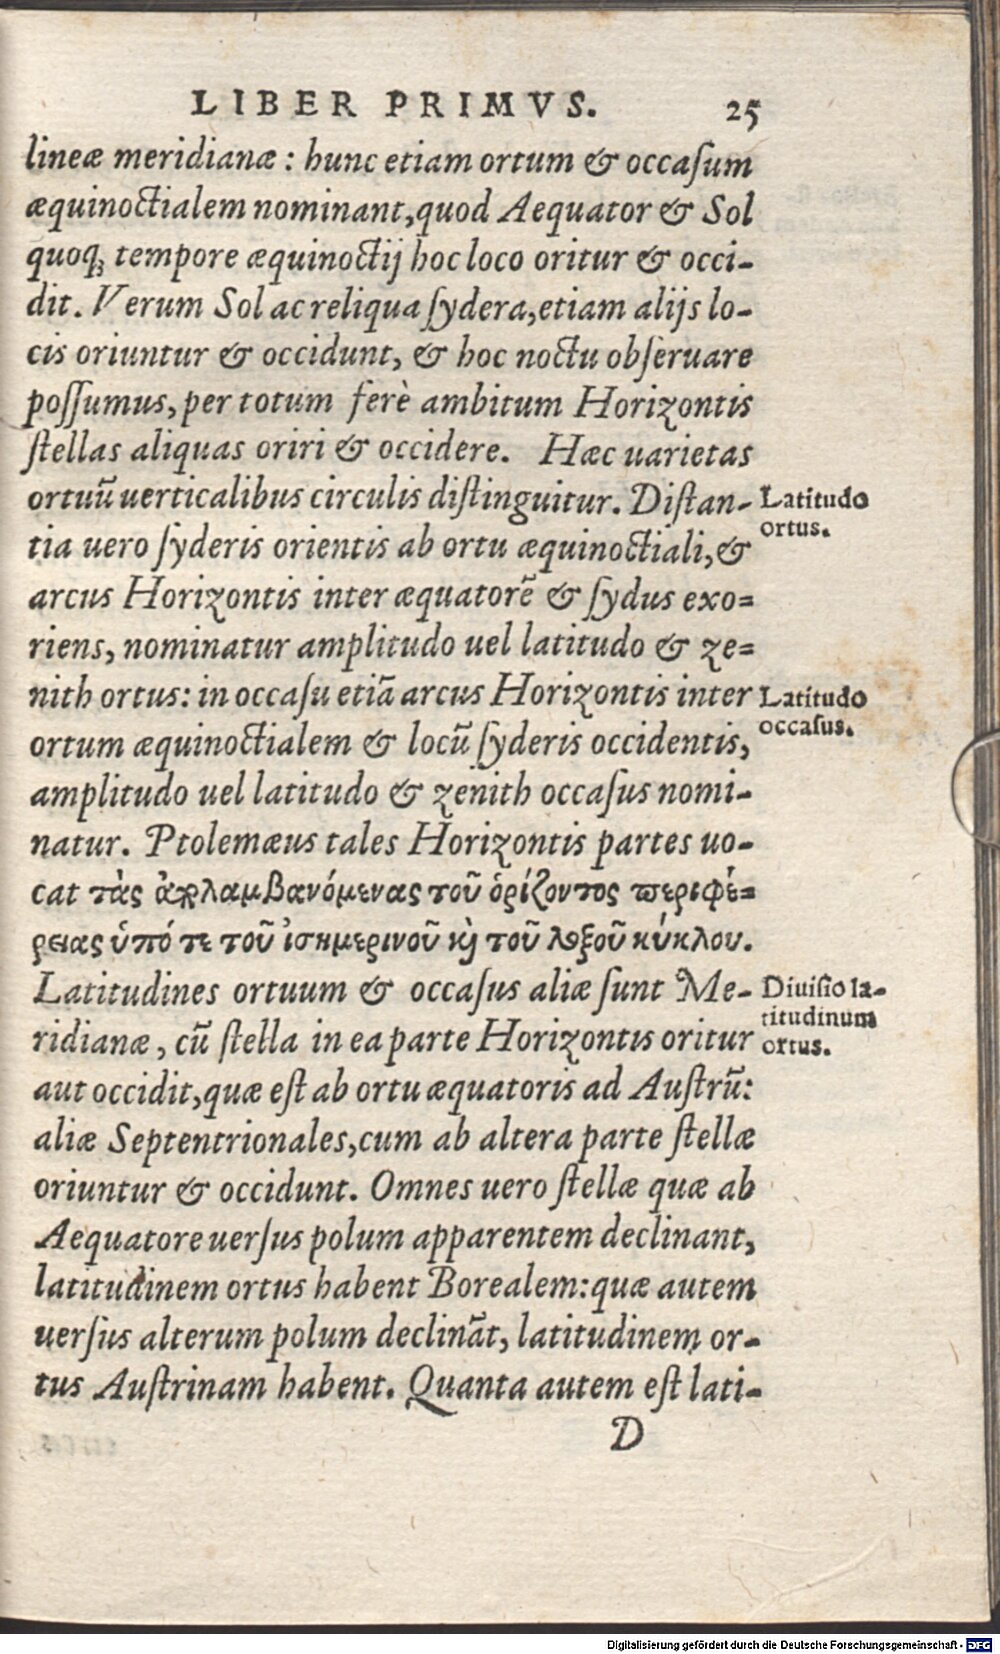 LIBER PRIMVS. 25
lineæ meridianæ: hunc etiam ortum & occaſum
æquinoctialem nominant, quod Aequator & Sol
quoq; tempore æquinoctij hoc loco oritur & occi-
dit. Verum Sol ac reliqua ſydera, etiam alijs lo-
cis oriuntur & occidunt, & hoc noctu obſeruare
poſſumus, per totum ferè ambitum Horizontis
ſtellas aliquas oriri & occidere. Hæc uarietas
ortuũ uerticalibus circulis diſtinguitur. Diſtan-
Latitudo
ortus.
tia uero ſyderis orientis ab ortu æquinoctiali, &
arcus Horizontis inter æquatorẽ & ſydus exo=
riens, nominatur amplitudo uel latitudo & ze=
nith ortus: in occaſu etiã arcus Horizontis inter
Latitudo
occaſus.
ortum æquinoctialem & locũ ſyderis occidentis,
amplitudo uel latitudo & zenith occaſus nomi-
natur. Ptolemæus tales Horizontis partes uo-
cat τὰς ἀπολαμβανόμενας τοῦ ὁρίζοντος περιφέ=
ρειας ὑπό τε τοῦ ἰσημερινοῦ κὶ τοῦ λοξοῦ κύκλου.
Latitudines ortuum & occaſus aliæ ſunt Me-
Diuiſio la-
titudinum
ortus.
ridianæ, cũ ſtella in ea parte Horizontis oritur
aut occidit, quæ eſt ab ortu æquatoris ad Auſtrũ:
aliæ Septentrionales, cum ab altera parte ſtellæ
oriuntur & occidunt. Omnes uero ſtellæ quæ ab
Aequatore uerſus polum apparentem declinant,
latitudinem ortus habent Borealem: quæ autem
uerſus alterum polum declinãt, latitudinem or-
tus Auſtrinam habent. Quanta autem eſt lati-
D
Digitalisierung gefördert durch die Deutsche Forschungsgemeinschaft - DFG